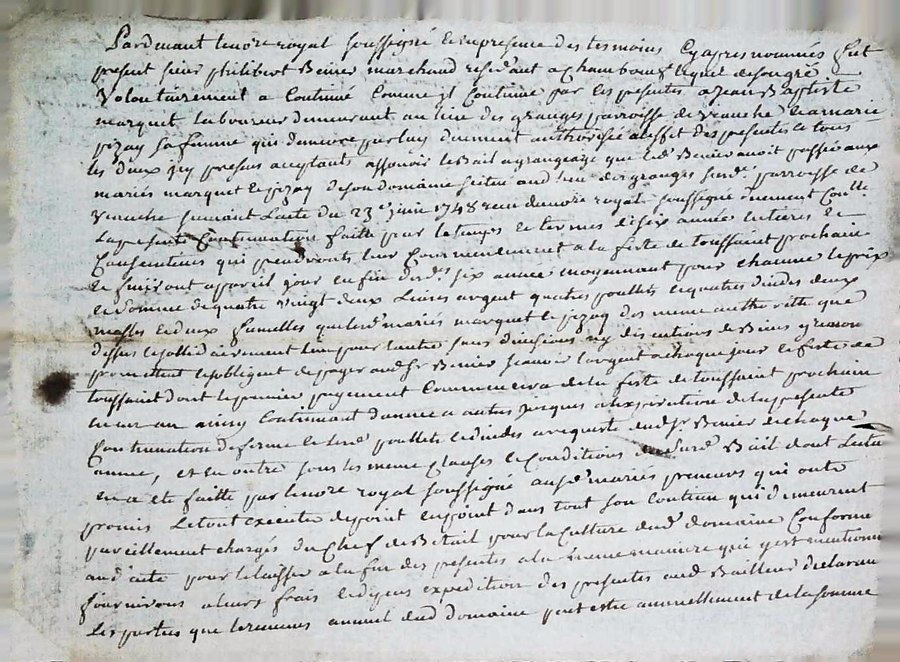 Pardevant le no.re royal soussigné et en presence des tesmoins Cyapres nommés fut
present sieur philibert Benier marchand residant a Chambouf lequel de son gré
Volontairement a Continué Comme il Continue par les presentes a Jean Baptiste
marquet laboureur demeurant au lieu des granges parroisse de Veauche et a marie
pizay sa femme qui demeure par luy duement authorisée a leffet des presentes Ce tous
les deux icy presens aceptants assavoir le Bail a grangeage que led. Benier avoit passé aux
mariés marquet et pizay de son domaine scitué aud. lieu des granges susd. parroisse de
Veauche suivant lacte du 23e juin 1748 receu du no.re royal soussigné
la presente Continuation faitte pour le temps et termes de six année entieres et
Consecutives qui prendront leur Commencement a la feste de toussaint prochaine
et finiront a pareil jour en fin desd. six année moyennant pour chacune le prix
et somme de quatre vingt deux Livres argent quatres poullets et quatres dindes deux
masles et deux fumelles que lesd. mariés marquet et pizay des meme authorité que
dessus et sollidairement lun pour lautre sans division ny discutions de Biens y renon
promettent et sobligent de payer aud. Sr Benier scavoir largent a chaque jour et feste de
toussaint dont le premier payement Commencera de la feste de toussaint prochaine
en un an ainsy Continuant dannée a autres jusques a lexpiration de la presente
Continuation de ferme et lesd. poullets et dindes a requeste dud. Sr Benier de chaque
année, et en outre sous les meme Clauses et Conditions du susd. Bail dont lectu
en a eté faitte par le no.re royal soussigné ausd. mariés preneurs qui ont
promis le tout executer de point en point dans tout son Contenu qui demeurent
pareillement chargés du Chef de Betail pour la Culture dud. domaine Conforme
aud. acte pour le laisser a la fin des presentes a la meme maniere qui y est mentionn
fourniront a leurs frais et depens expedition des presentes aud. Bailleur declarant
les parties que le revenu annuel dud. domaine peut estre annuellement de la somme